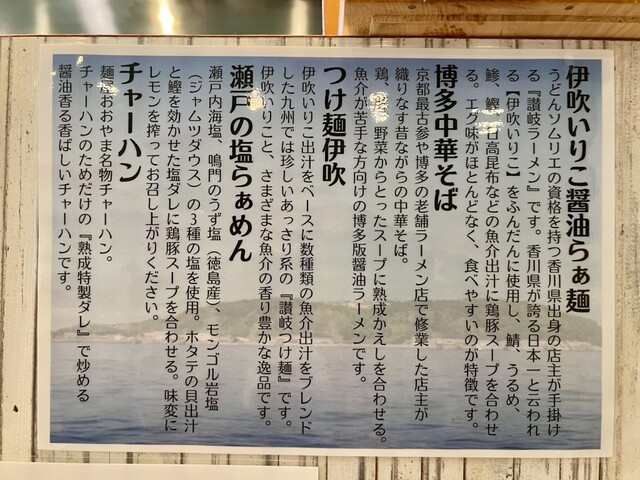 伊吹いりこ醤油らぁ麺
うどんソムリエの資格を持つ香川県出身の店主が手掛け
る『讃岐ラーメン』です。香川県が誇る日本一と云われ
る【伊吹いりこ】をふんだんに使用し、鯖、うるめ、
鯵、鰹、日高昆布などの魚介出汁に鶏豚スープを合わせ
る。エグ味がほとんどなく、食べやすいのが特徴です。
博多中華そば
京都最古参や博多の老舗ラーメン店で修業した店主が
織りなす昔ながらの中華そば。
鶏、豚、野菜からとったスープに熟成かえしを合わせる。
魚介が苦手な方向けの博多版醤油ラーメンです。
つけ麺伊吹
伊吹いりこ出汁をベースに数種類の魚介出汁をブレンド
した九州では珍しいあっさり系の『讃岐つけ麺』です。
伊吹いりこと、さまざまな魚介の香り豊かな逸品です。
瀬戸の塩らぁめん
瀬戸内海塩、鳴門のうず塩（徳島産）、モンゴル岩塩
（ジャムツダウス）の3種の塩を使用。ホタテの貝出汁
と鰹を効かせた塩ダレに鶏豚スープを合わせる。味変に
レモンを搾ってお召し上がりください。
チャーハン
麺屋おおやま名物チャーハン。
チャーハンのためだけの『熟成特製ダレ』で炒める
醤油香る香ばしいチャーハンです。